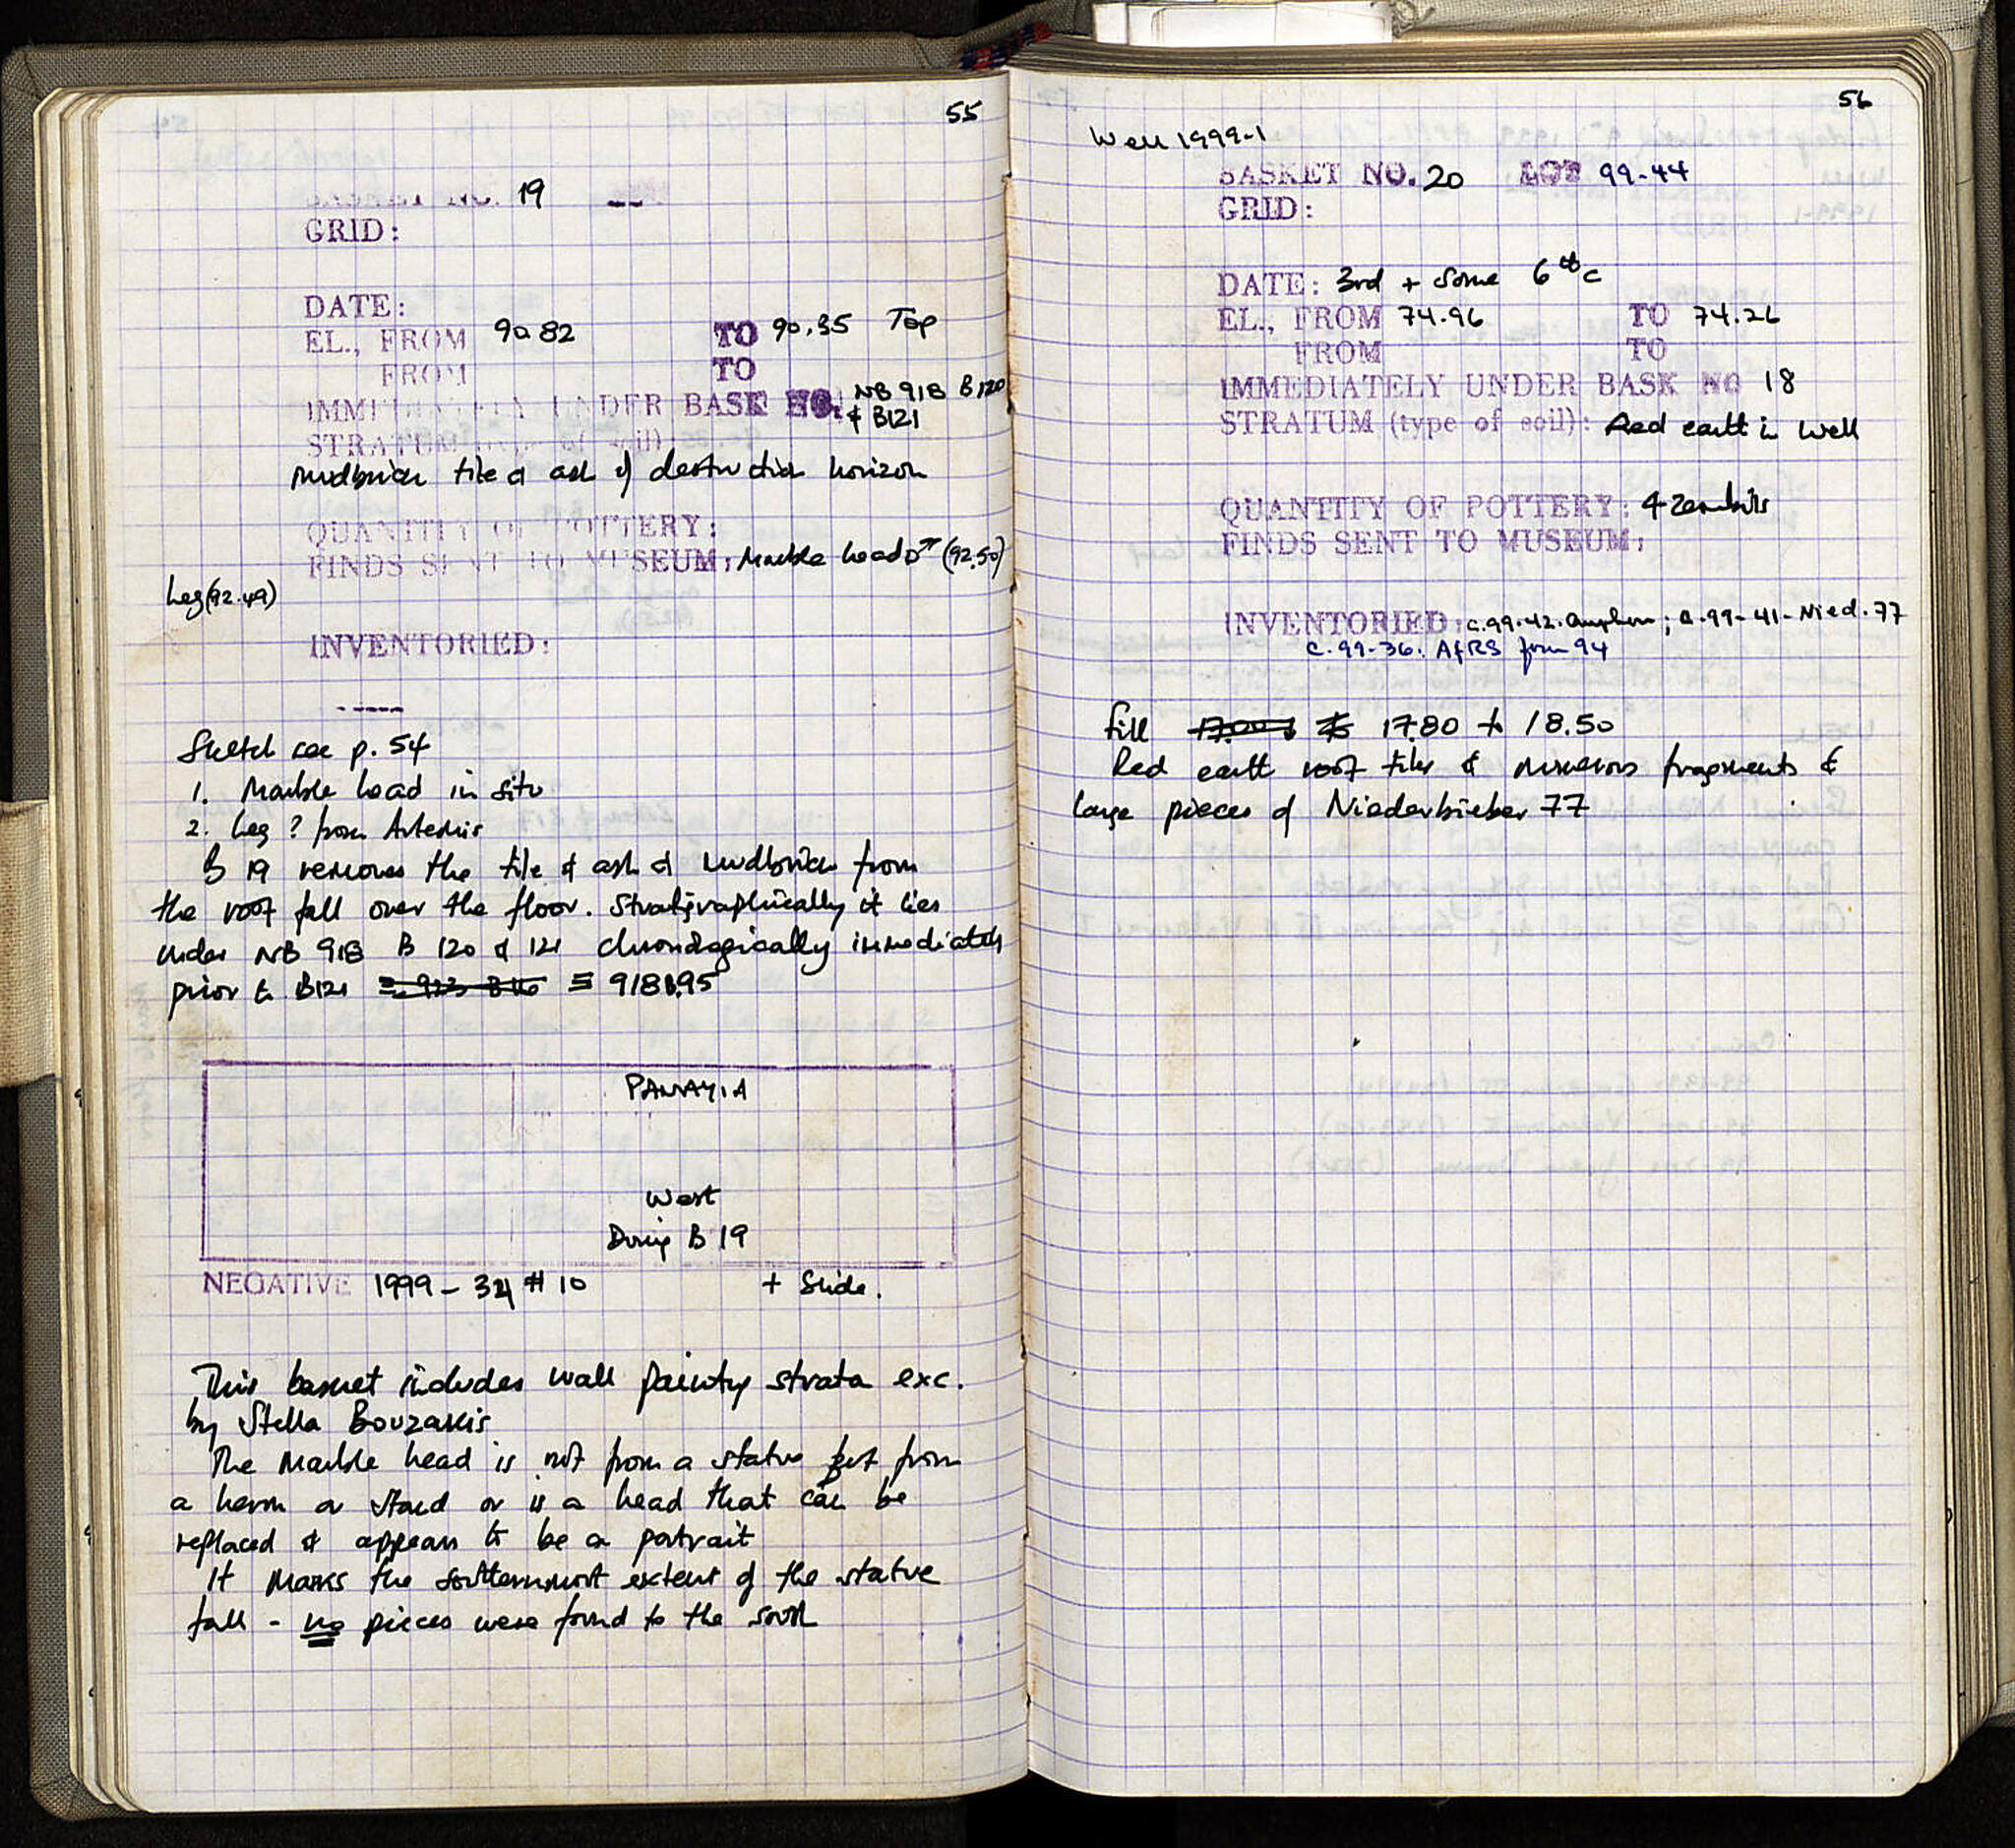 55
BASKET NO. 19
GRID:
DATE:
EL., FROM 90.82 TO 90.35 Top
FROM TO
IMMEDIATELY UNDER BASK NO. NB 918 B120
& B121
STRATUM (type of soil):
mudbrick tile & ash of destruction horizon
QUANTITY OF POTTERY:
FINDS SENT TO MUSEUM: Marble head (92.50)
Leg (92.49)
INVENTORIED:
Sketch see p. 54
1. Marble head in situ
2. Leg ? from Artemis
B 19 removes the tile & ash & mudbrick from
the roof fall over the floor. Stratigraphically it lies
under NB 918 B 120 & 121 chronologically immediately
prior to B121 ≡ 918 B95
PANAYIA
West
During B 19
NEGATIVE 1999 - 34 # 10 + Slide.
This basket includes wall painting strata exc.
by Stella Bouzakis
The marble head is not from a statue but from
a herm or stand or is a head that can be
replaced & appears to be a portrait
It marks the southernmost extent of the statue
fall - no pieces were found to the south
56
Well 1999-1
BASKET NO. 20 LOT 99-44
GRID:
DATE: 3rd + some 6th c
EL., FROM 74.96 TO 74.26
FROM TO
IMMEDIATELY UNDER BASK NO 18
STRATUM (type of soil): Red earth in well
QUANTITY OF POTTERY: 4 zembils
FINDS SENT TO MUSEUM:
INVENTORIED: C.99-42. amphora; C.99-41-Nied. 77
C.99-36. AfRS form 94
fill 17.80 to 18.50
Red earth roof tiles & numerous fragments &
large pieces of Niederbieber 77